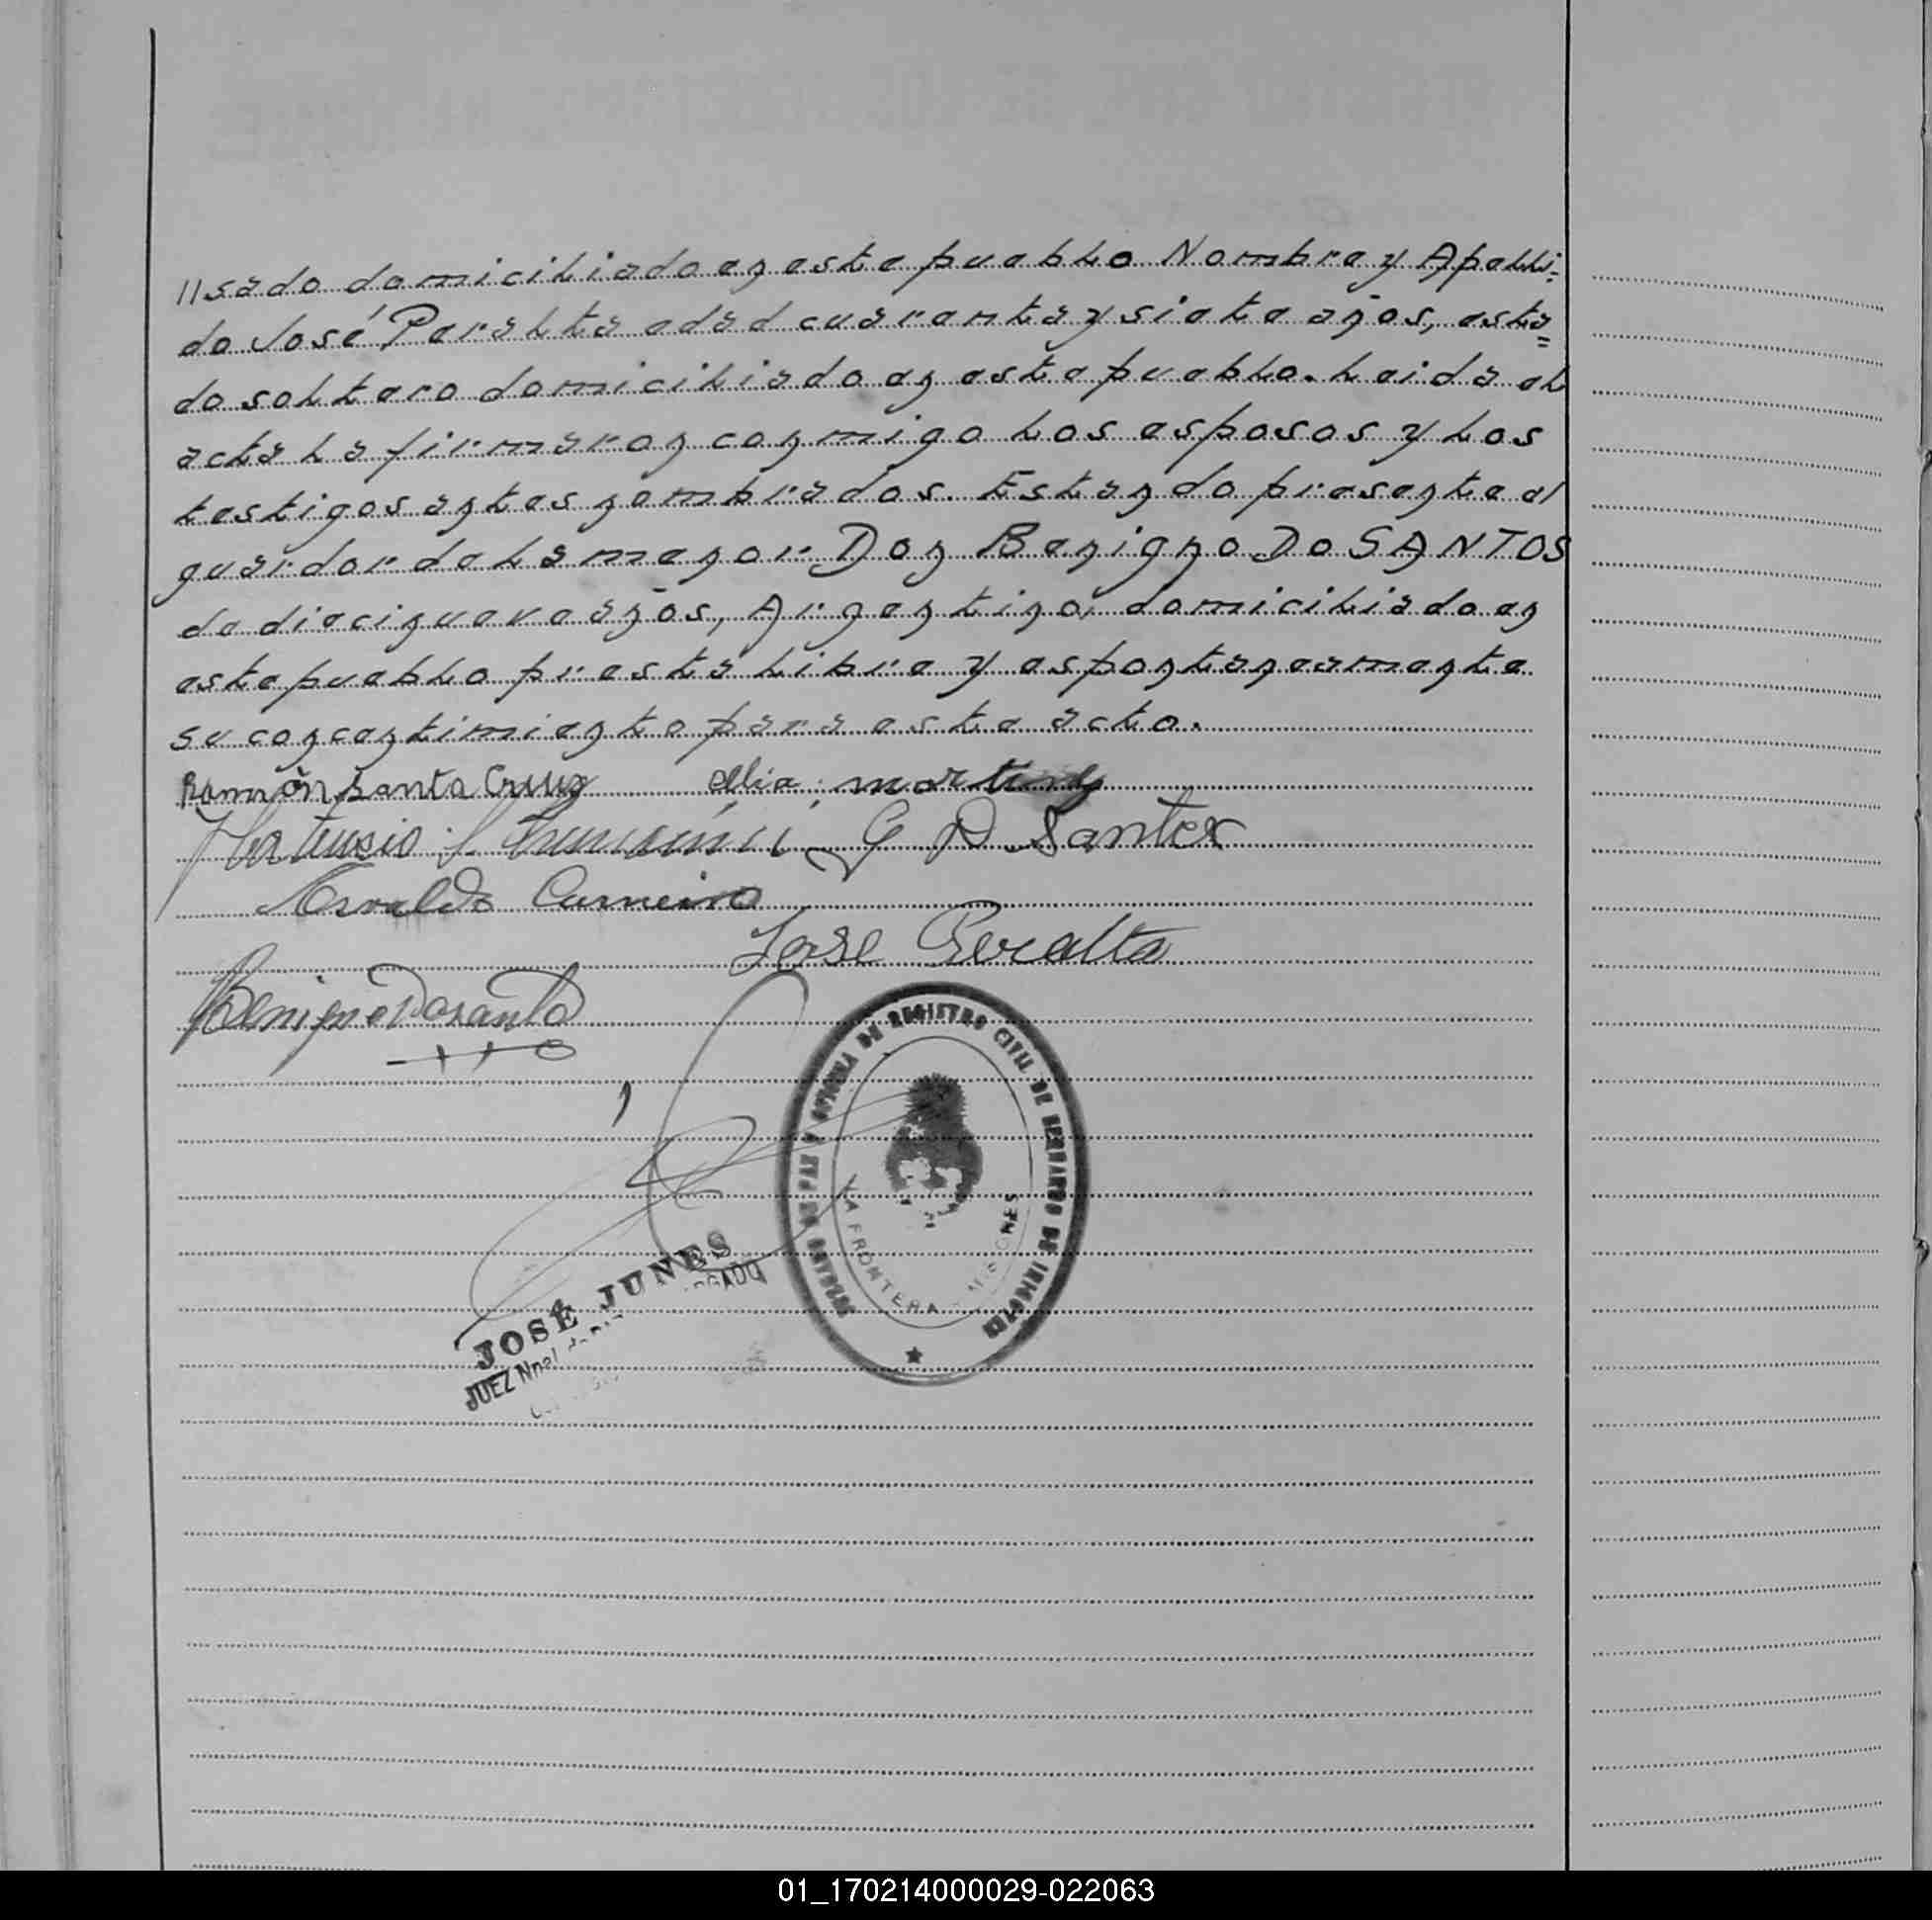 //sado domiciliado en este pueblo Nombre y Apelli-
do José Peralta edad cuarenta y siete años, esta=
do soltero domiciliado en este pueblo. Leida el
acta la firmaron conmigo los esposos y los
testigos antes nombrados. Estando presente el
guardor de la menor Don Benigno Do SANTOS
de diecinueve años, Argentino, domiciliado en
este pueblo presta libre y espontaneamente
su concentimiento para este acto.
Ramón Santa Cruz martinez
G D Santos
Osvaldo Carneiro
José Peralta
Benigno Dosanto
DE PAZ Y OFICINA DE REGISTRO CIVIL DE BERNARDO DE IRIGOYEN
LA FRONTERA - MISIONES
JOSÉ JUNES
JUEZ